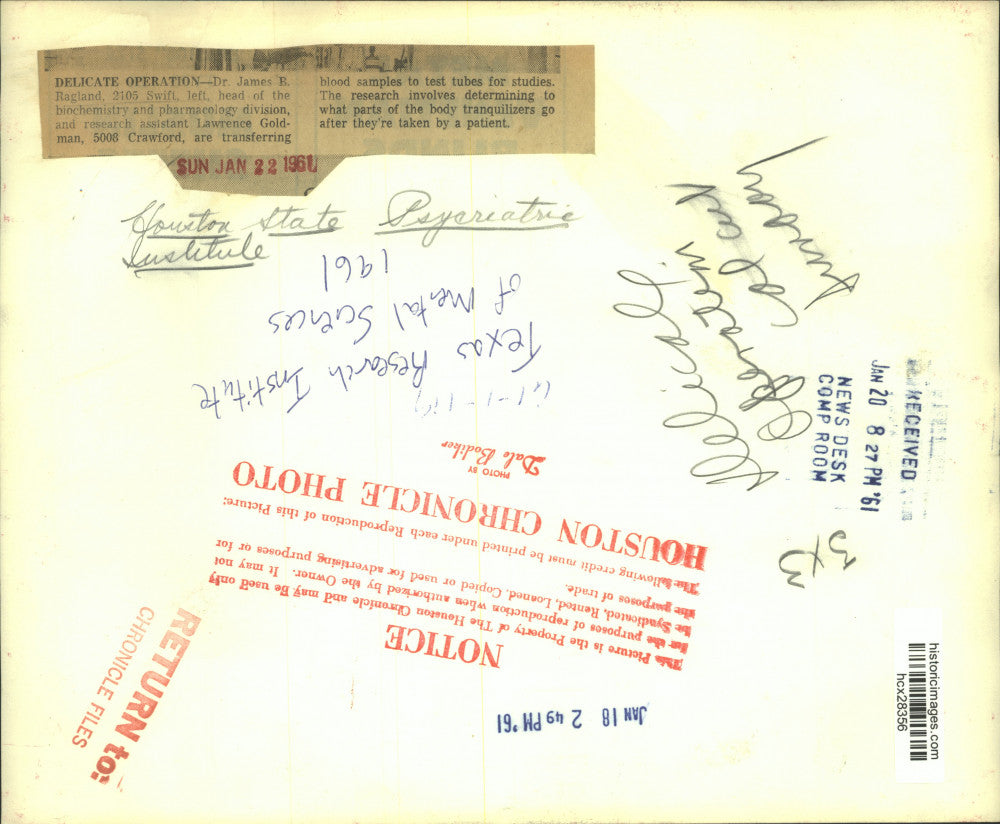 DELICATE OPERATION—Dr. James B.
Ragland, 2105 Swift, left, head of the
biochemistry and pharmacology division,
and research assistant Lawrence Gold-
man, 5008 Crawford, are transferring
blood samples to test tubes for studies.
The research involves determining to
what parts of the body tranquilizers go
after they're taken by a patient.
SUN JAN 22 1961
Houston State Psycriatric
Institute
Texas Research Institute
of Mental Sciences
1961
Sunday
3 x 5
RECEIVED
JAN 20 8 27 PM '61
NEWS DESK
COMP ROOM
PHOTO BY
Dale Bodiker
NOTICE
This Picture is the Property of The Houston Chronicle and may be used only
for the purposes of reproduction when authorized by the Owner. It may not
be Syndicated, Rented, Loaned, Copied or used for advertising purposes or for
the purposes of trade.
The following credit must be printed under each Reproduction of this Picture:
HOUSTON CHRONICLE PHOTO
JAN 18 2 49 PM '61
RETURN to:
CHRONICLE FILES
historicimages.com
hcx28356